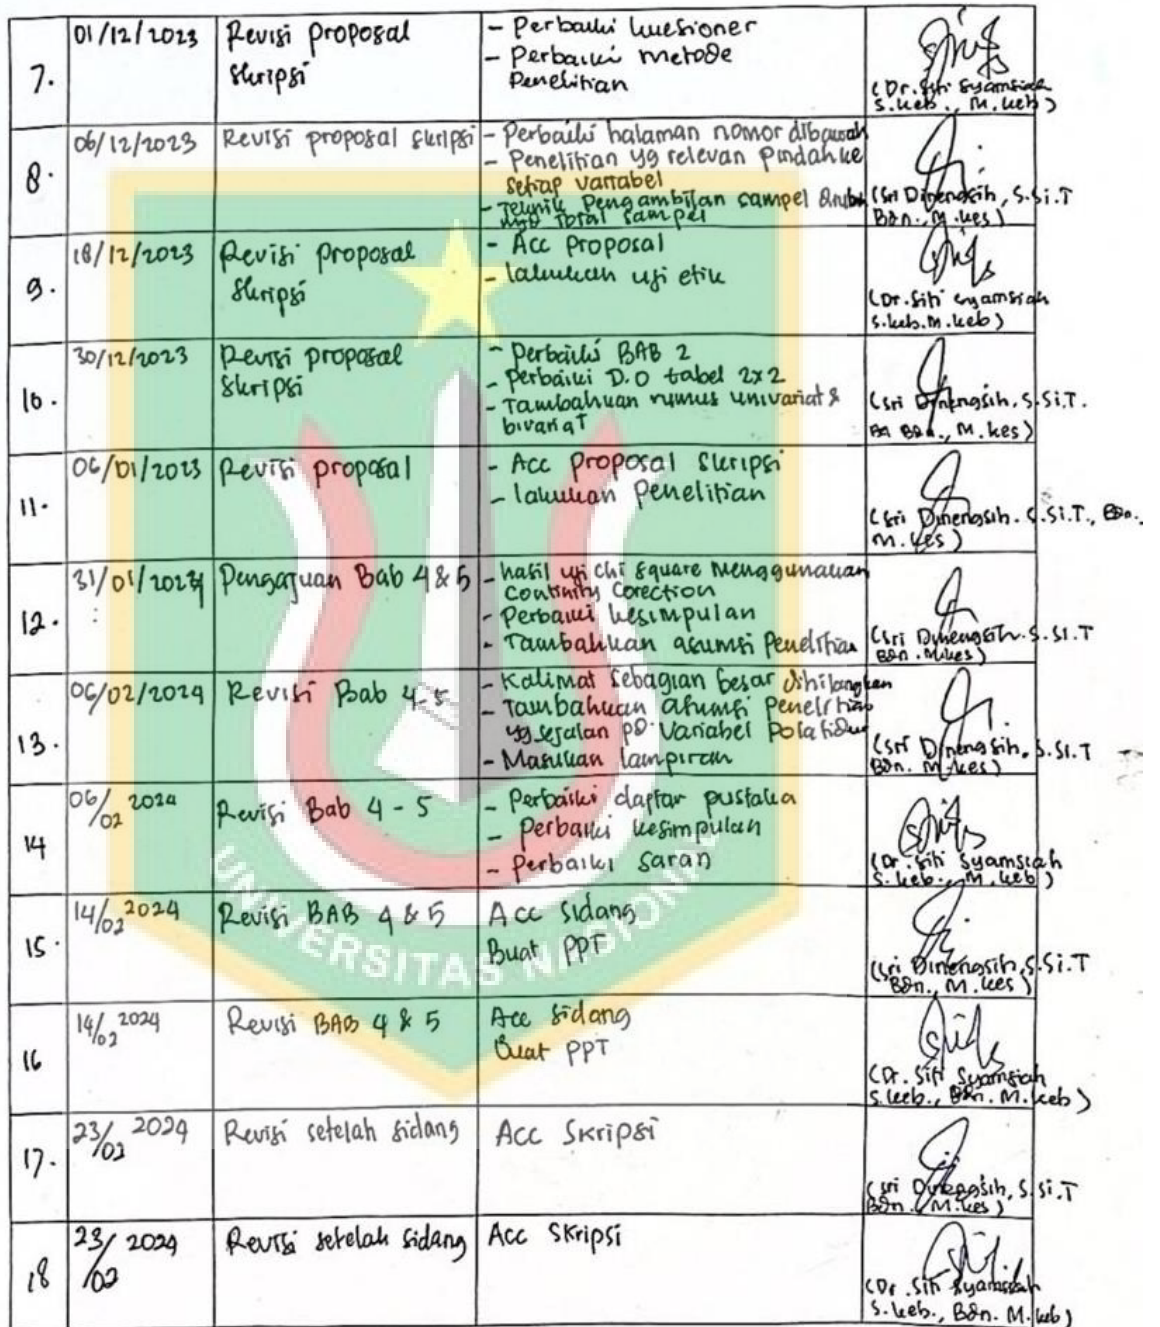 7.
01/12/2023
Revisi proposal
Skripsi
- Perbaiki kuesioner
- Perbaiki metode
Penelitian
(Dr. Siti Syamsiah
S.keb., M.keb)
8.
06/12/2023
Revisi proposal skripsi
- Perbaiki halaman nomor dibawah
- Penelitian yg relevan pindah ke
setiap variabel
- Teknik Pengambilan sampel
Total sampel
(Sri Dinengsih, S.Si.T
Bdn., M.kes)
9.
18/12/2023
Revisi proposal
Skripsi
- Acc Proposal
- lakukan uji etik
(Dr. Siti Syamsiah
S.keb. M.keb)
10.
30/12/2023
Revisi proposal
Skripsi
- Perbaiki BAB 2
- Perbaiki D.O tabel 2x2
- Tambahkan rumus univariat &
bivariat
(Sri Dinengsih, S.Si.T.
Bdn., M.kes)
11.
06/01/2023
Revisi proposal
- Acc proposal Skripsi
- lakukan Penelitian
(Sri Dinengsih. S.Si.T., Bdn.
M.kes)
12.
31/01/2024
Pengajuan Bab 4 & 5
- hasil uji chi square menggunakan
continity Corection
- Perbaiki kesimpulan
- Tambahkan asumsi Penelitian
(Sri Dinengsih. S.Si.T
Bdn. M.kes)
13.
06/02/2024
Revisi Bab 4-5
- Kalimat sebagian besar dihilangkan
- Tambahkan asumsi Penelitian
yg sejalan pd Variabel Pola tidur
- Masukan lampiran
(Sri Dinengsih, S.Si.T
Bdn. M.kes)
14
06/02 2024
Revisi Bab 4 - 5
- Perbaiki daftar pustaka
- Perbaiki kesimpulan
- Perbaiki saran
(Dr. Siti Syamsiah
S.keb., M.keb)
15.
14/02 2024
Revisi BAB 4 & 5
Acc Sidang
Buat PPT
(Sri Dinengsih, S.Si.T
Bdn., M.kes)
16
14/02 2024
Revisi BAB 4 & 5
Acc Sidang
Buat PPT
(Dr. Siti Syamsiah
S.keb., Bdn. M.keb)
17.
23/02 2024
Revisi setelah sidang
Acc Skripsi
(Sri Dinengsih, S.Si.T
Bdn. M.kes)
18
23/02 2024
Revisi setelah sidang
Acc Skripsi
(Dr. Siti Syamsiah
S.keb., Bdn. M.keb)
UNIVERSITAS NASIONAL